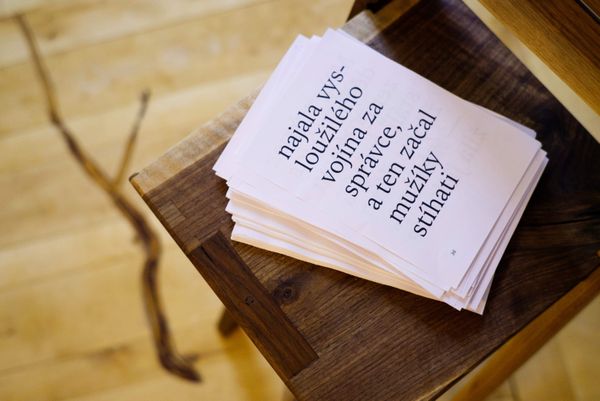 najala vys-
loužilého
vojína za
správce,
a ten začal
mužíky
stihati